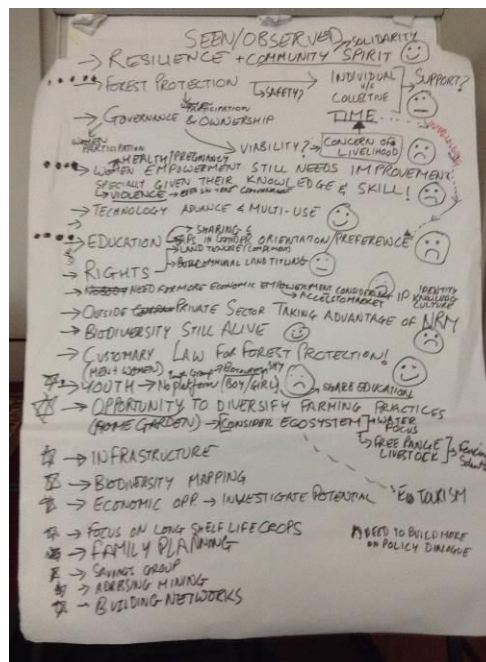 SEEN/OBSERVED → SOLIDARITY
→ RESILIENCE + COMMUNITY SPIRIT
→ FOREST PROTECTION → INDIVIDUAL V/S COLLECTIVE SUPPORT?
↳ SAFETY?
TIME
PARTICIPATION
→ GOVERNANCE & OWNERSHIP
WOMEN PARTICIPATION
VIABILITY? → CONCERN OF LIVELIHOOD
→ HEALTH/PREGNANCY
→ WOMEN EMPOWERMENT STILL NEEDS IMPROVEMENT
SPECIALLY GIVEN THEIR KNOWLEDGE & SKILL!
↳ VIOLENCE
→ TECHNOLOGY ADVANCE & MULTI-USE
→ SHARING &
→ EDUCATION → GAPS IN GENDER ORIENTATION/PREFERENCE
→ LAND TENURE
→ RIGHTS
→ COMMUNAL LAND TITLING
→ NEED FOR MORE ECONOMIC EMPOWERMENT CONSIDERING IP IDENTITY KNOWLEDGE CULTURE
↳ ACCESS TO MARKET
→ OUTSIDE PRIVATE SECTOR TAKING ADVANTAGE OF NRM
→ BIODIVERSITY STILL ALIVE
→ CUSTOMARY LAW FOR FOREST PROTECTION!
(MEN & WOMEN)
→ YOUTH → NO platform (BOY/GIRL) → SHARE EDUCATION
→ OPPORTUNITY TO DIVERSIFY FARMING PRACTICES
(HOME GARDEN) → CONSIDER ECOSYSTEM → WATER FOCUS
→ FREE RANGE LIVESTOCK
→ INFRASTRUCTURE
→ BIODIVERSITY MAPPING
→ ECONOMIC OPP. → INVESTIGATE POTENTIAL
Eco TOURISM
→ FOCUS ON LONG SHELF LIFE CROPS
NEED TO BUILD MORE ON POLICY DIALOGUE
→ FAMILY PLANNING
→ SAVINGS GROUP
→ ADDRESSING MINING
→ BUILDING NETWORKS